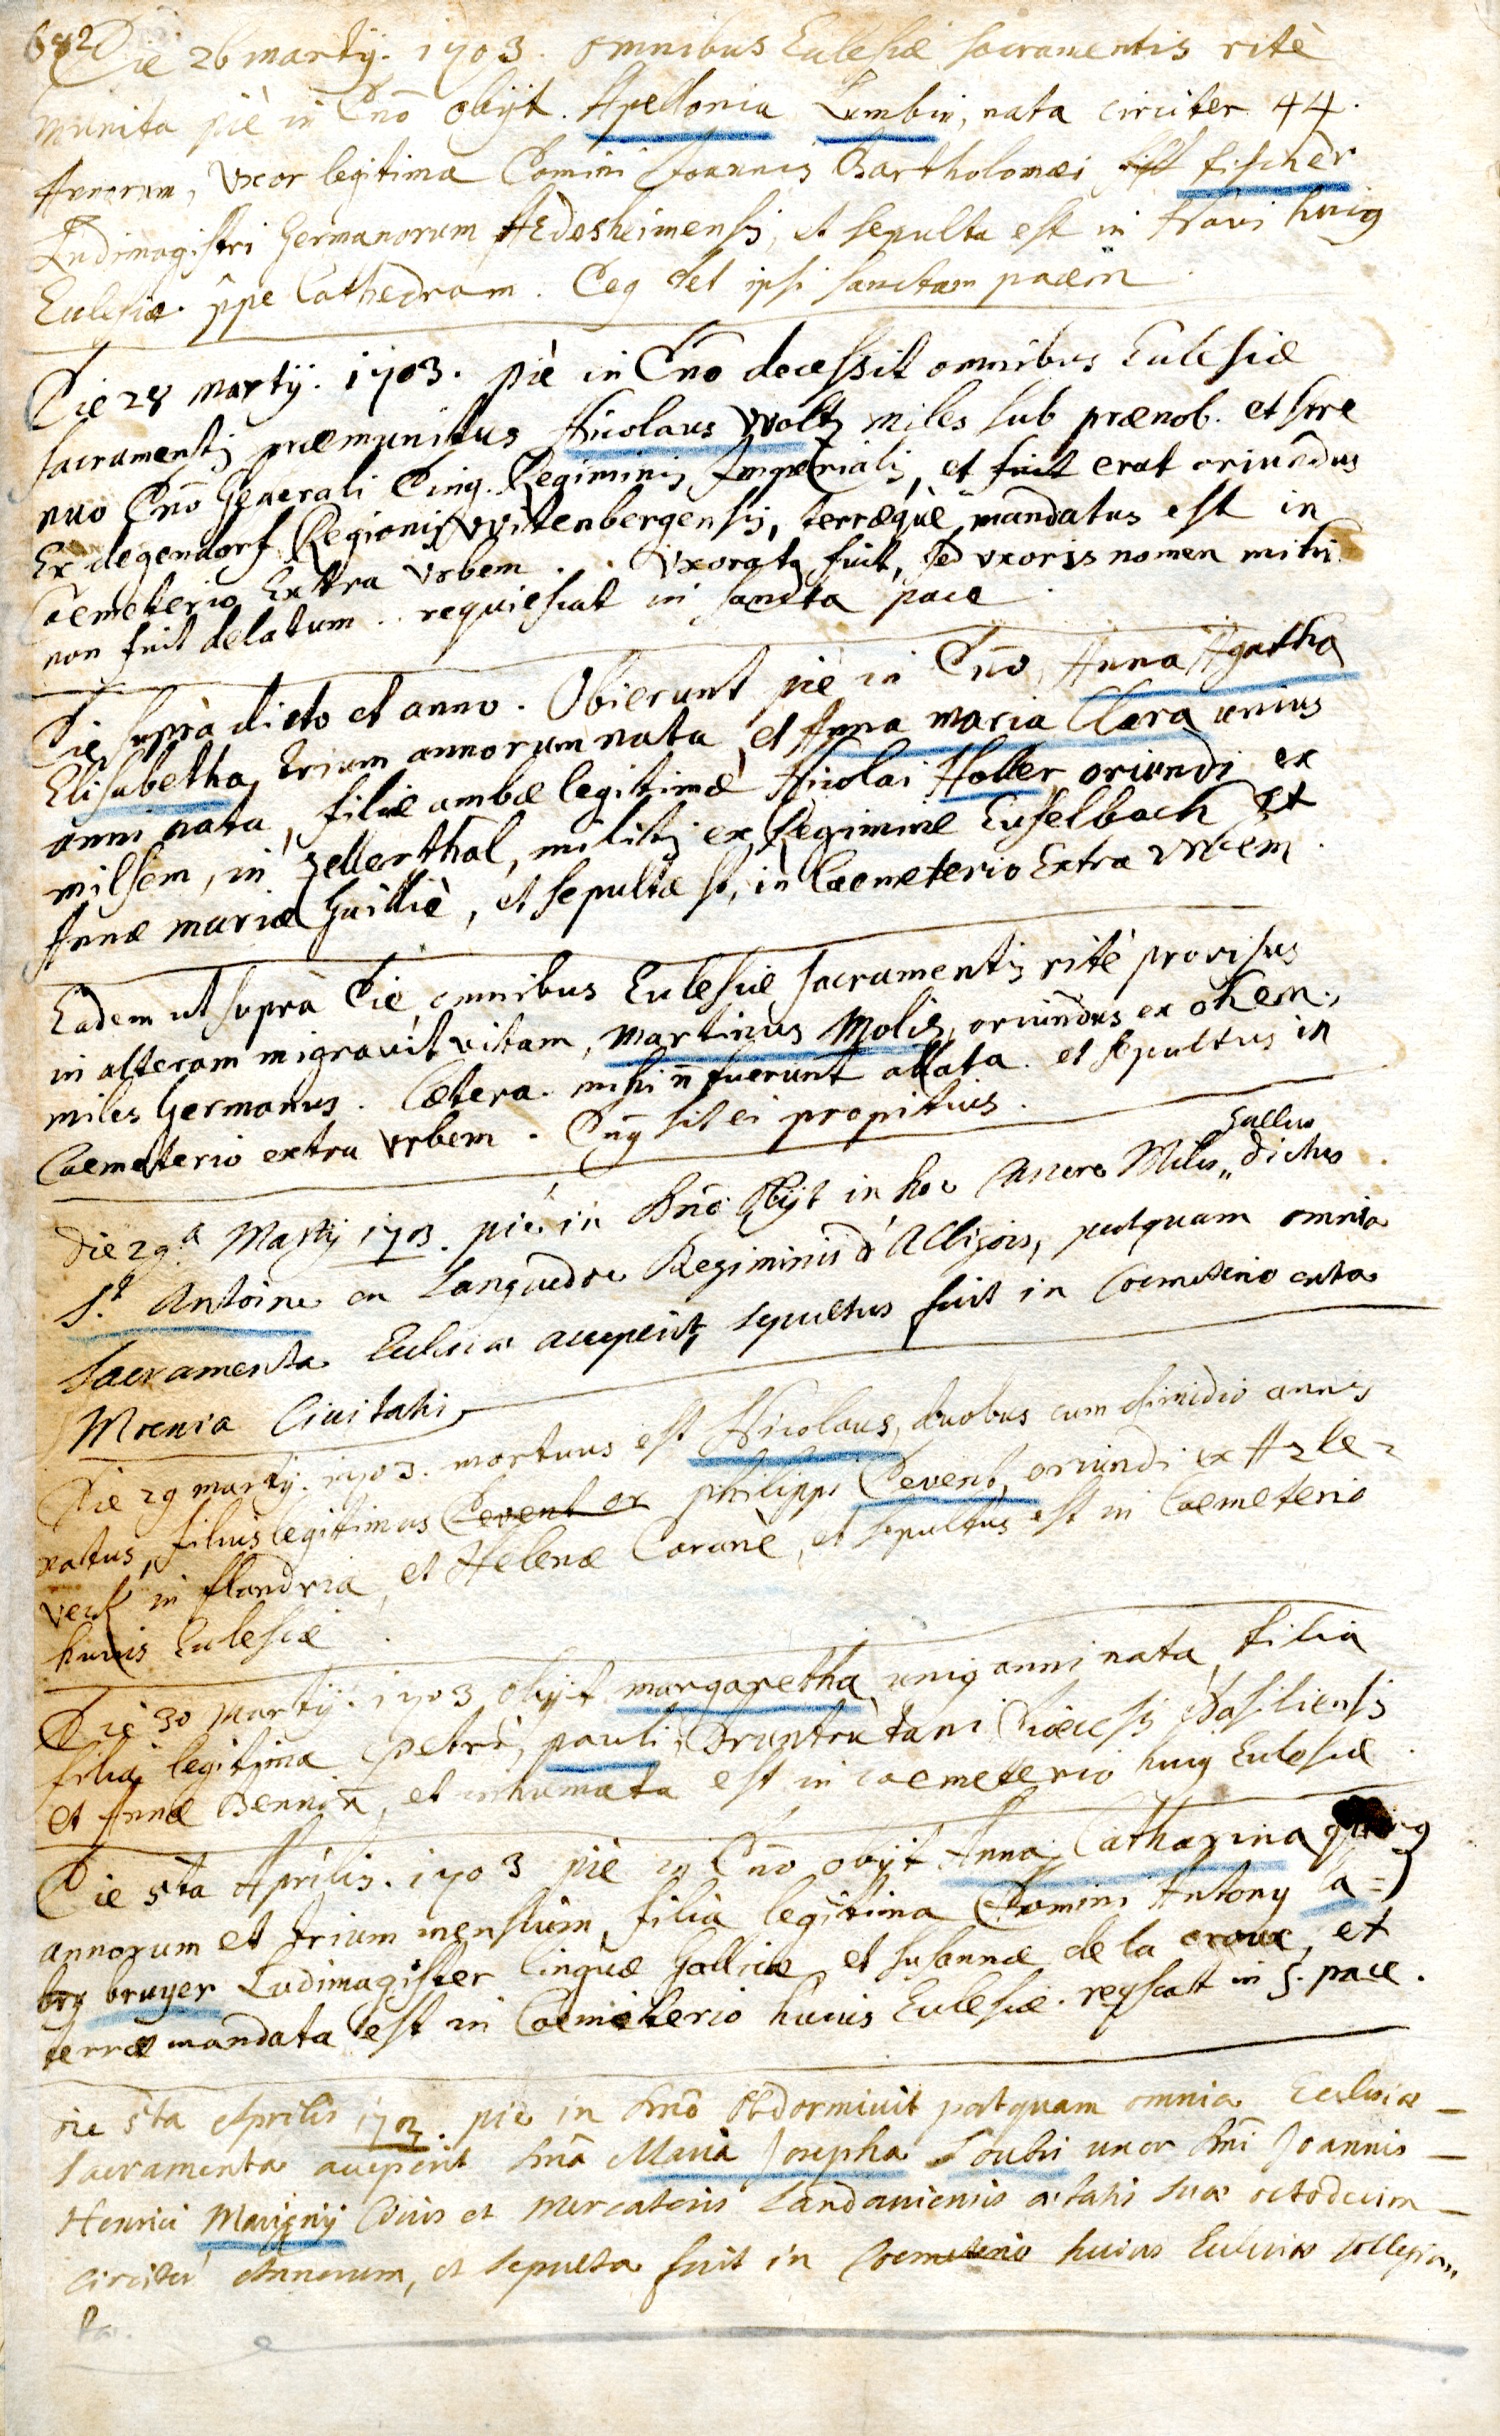 682
Die 26 martij. 1703. omnibus Eulesiæ sacramentis ritè
munita piè in Dno obijt. Apellonia Lembin, nata circiter 44.
Annorum, vxor legitima Domini Joannis Bartholomæi fischer
Ludimagistri Germanorum Aedesheimensis, et sepulta est in navi huig
Eulesiæ. ppe Cathedram. Deg det ipsi sanctam pacem
Die 28 martij. 1703. piè in Dno decessit omnibus Eulesiæ
sacramentis præmunitus Nicolaus Woltz miles sub prænob. et stre
nuo Dno Generali Ding. Regiminis Imperialis, et fuit erat oriundus
Ex degendorf Regionis Wirtenbergensis, terræquè mandatus est in
Cæmeterio Extra vrbem. vxoratg fuit, sed vxoris nomen mihi
non fuit delatum. requiescat in sancta pace.
Die suprà dicto et anno. Obierunt piè in Dno, Anna Agatha
Elisabetha trium annorum nata, et Anna maria Clara unius
anni nata, filiæ ambæ legitimæ Nicolai Holler oriundi ex
milsem, in zellerthal, militis ex Regimine Euselbach et
Annæ mariæ Guilliè, et sepultæ st, in Cæmeterio Extra vrbem.
Eadem ut suprà Die, omnibus Eulesiæ sacramentis ritè provisus
in alteram migravit vitam, Martinus Molis, oriundus ex ohem.,
miles Germanus. Cætera. mihi n fuerunt allata. et sepultus in
Cæmeterio extra vrbem. Dng sit ei propitius.
Die 29.a Martij 1703. piè in Dnõ Obijt in hoc Miles „ Gallus dictus
S.t Antoine en Languedoc Regiminis d'Albigois, postquam omnia
Sacramenta Eulesiæ acceperit, sepultus fuit in Coemeterio extra
Moenia Ciuitatis
Die 29 martij. 1703. mortuus est Nicolaus, duobus cum dimidio annis
natus, filius legitimus Devent ex philippi Devent, oriundi ex Haze-
veck in flandria, et Helenæ Caranè, et sepultus est in Cæmeterio
huius Eulesiæ.
Die 30 Martij. 1703 obijt margaretha unig anni nata, filia
filia legitima Petri, pauli, Bruntrutani diæcesis Basiliensis
et Annæ Bennin, et inhumata est in cæmeterio huig Eulesiæ.
Die 5ta Aprilis. 1703 piè in Dno obijt Anna Catharina
annorum et trium mensium, filia legitima Domini Antony la=
bry bruyer Ludimagister linguæ Gallicæ et susannæ de la croux, et
terræ mandata est in Cæmeterio huius Eulesiæ. reqscat in S. pace.
Die 5ta Aprilis 1703. piè in Dnõ Obdormiuit postquam omnia Eulesiæ
Sacramenta acceperit Dnã Maria Josepha Soubri uxor Dni Joannis
Henrici Marignij Ciuis et Mercatoris Landauiensis ætatis suæ octodecim
circiter Annorum, et sepulta fuit in Coemeterio huius Eulesiæ Collegia„
ta.